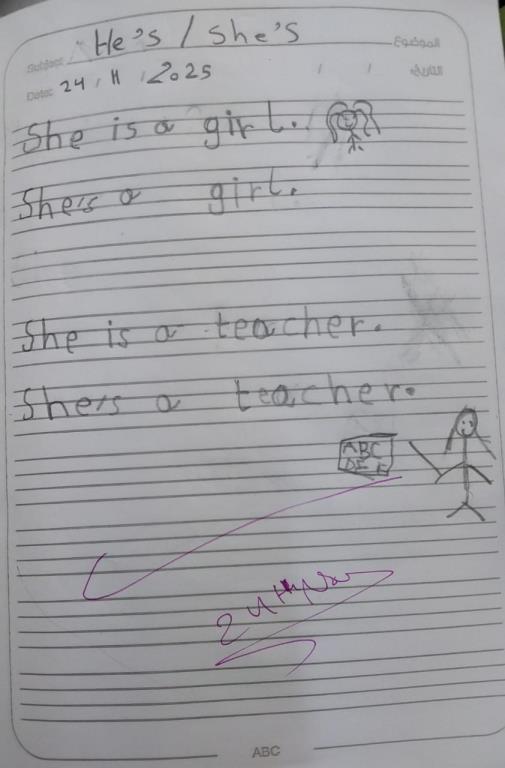 Subject: He's / She's الموضوع
Date: 24 / 11 / 2025 / / التاريخ
She is a girl.
She's a girl.
She is a teacher.
She's a teacher.
ABC
DE F
24th Nov
ABC